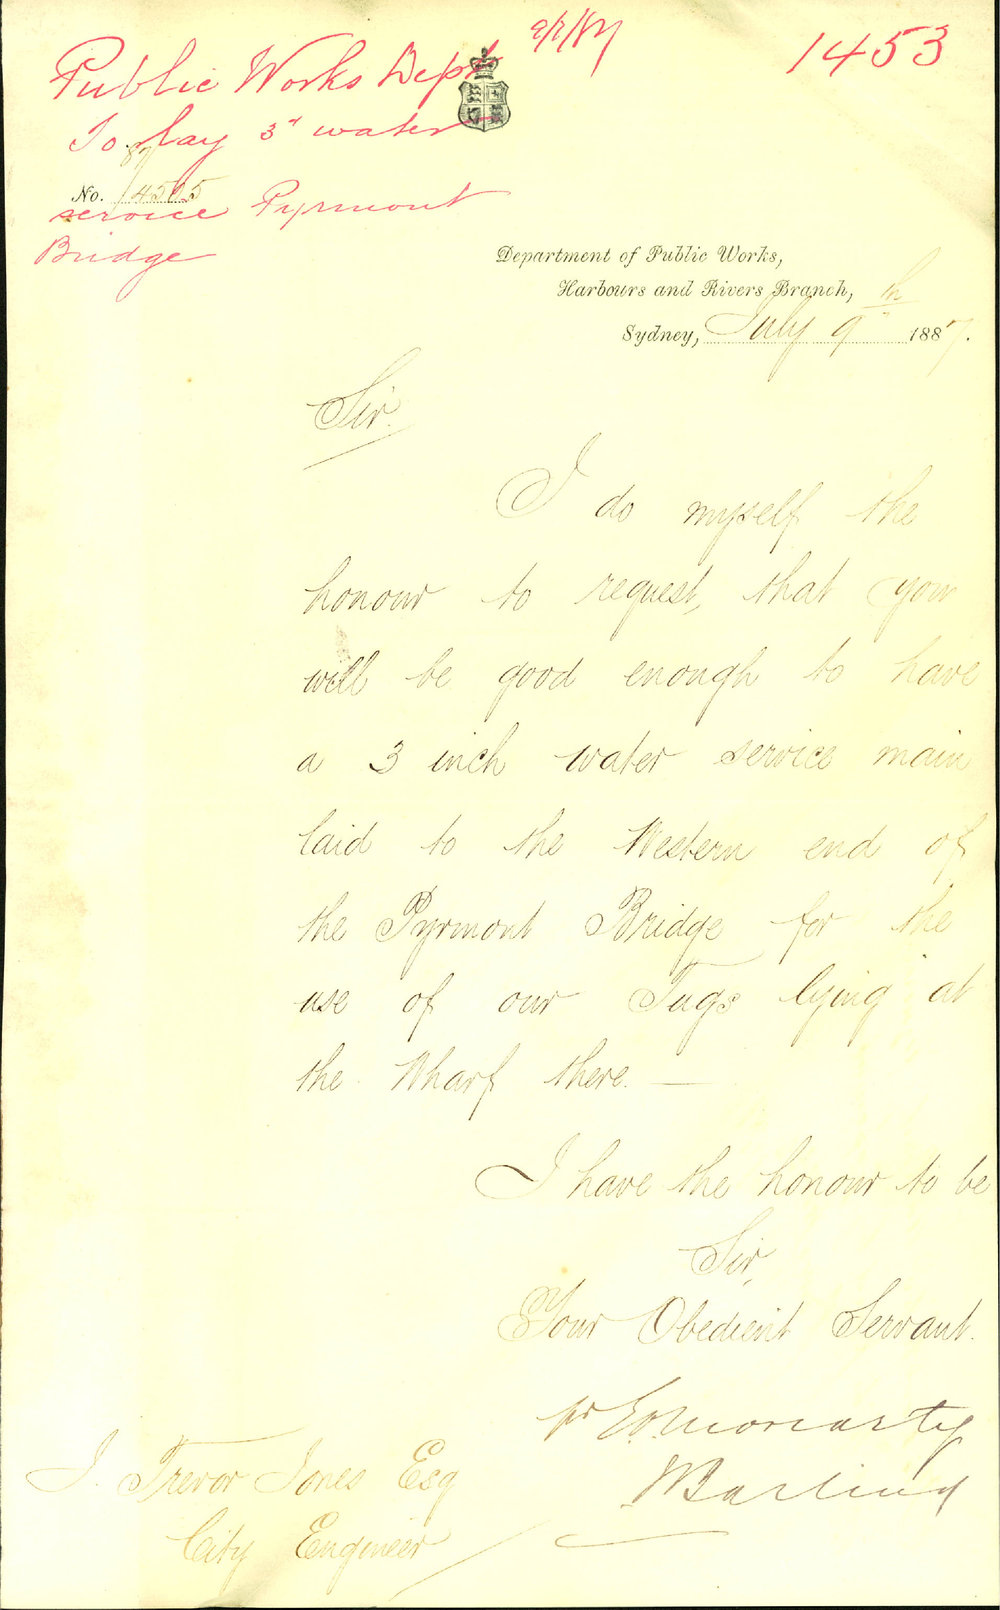 9/7/87
1453
Public Works Dept
To lay 3" water
87
No. 4505
service Pyrmont
Bridge
Department of Public Works,
Harbours and Rivers Branch,
Sydney, July 9th 1887.
Sir.
I do myself the
honour to request, that you
will be good enough to have
a 3 inch water service main
laid to the Western end of
the Pyrmont Bridge for the
use of our Tugs lying at
the Wharf there. —
I have the honour to be
Sir,
Your Obedient Servant.
pr E.O. Moriarty
J. Trevor Jones Esq
City Engineer